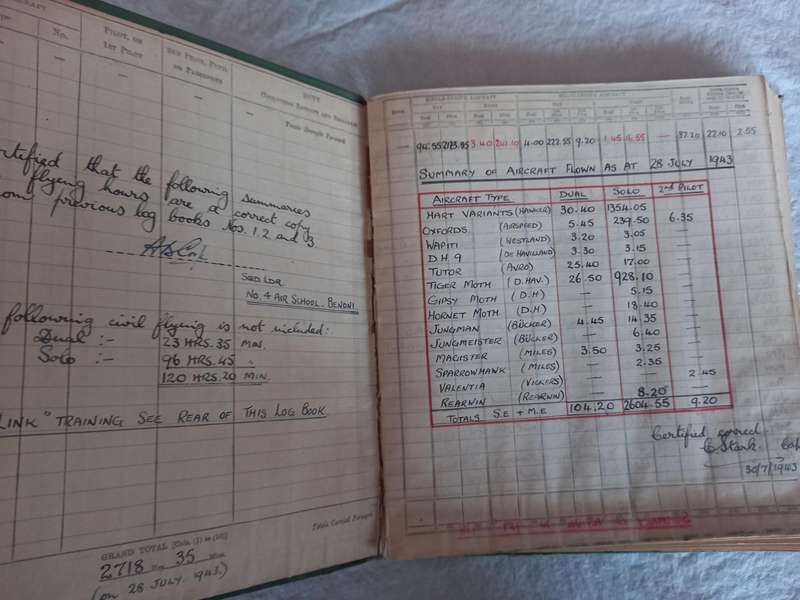 No.
PILOT, OR
1ST PILOT
2ND PILOT, PUPIL
OR PASSENGER
DUTY
(INCLUDING RESULTS AND REMARKS)
Totals Brought Forward
that the following summaries
flying hours are a correct copy
previous log books Nos. 1, 2 and 3
SQD LDR
No. 4 AIR SCHOOL. BENONI.
following civil flying is not included:-
Dual :- 23 HRS. 35 MIN.
Solo :- 96 HRS. 45 "
120 HRS. 20 MIN
LINK" TRAINING SEE REAR OF THIS LOG BOOK
Totals Carried Forward
GRAND TOTAL [Cols. (1) to (10)]
2718 Hrs 35 Mins
(on 28 JULY 1943.)
SINGLE-ENGINE AIRCRAFT
MULTI-ENGINE AIRCRAFT
94.55 2123.55 3.40 241.10 4.00 222.55 9.20 1.45 16.55 — 37.20 22.10 2.55
SUMMARY OF AIRCRAFT FLOWN AS AT 28 JULY 1943
AIRCRAFT TYPE DUAL SOLO 2nd PILOT
HART VARIANTS (HAWKER) 30.40 1354.05
OXFORDS (AIRSPEED) 5.45 239.50 6.35
WAPITI (WESTLAND) 3.20 3.05 —
D.H. 9 (DE HAVILLAND) 3.30 3.15 —
TUTOR (AVRO) 25.40 17.00 —
TIGER MOTH (D.HAV.) 26.50 928.10 —
GIPSY MOTH (D.H) — 5.15 —
HORNET MOTH (D.H) — 18.40 —
JUNGMAN (BÜCKER) 4.45 14.35 —
JUNGMEISTER (BÜCKER) — 6.40 —
MAGISTER (MILES) 3.50 3.25 —
SPARROWHAWK (MILES) — 2.35 —
VALENTIA (VICKERS) — — 2.45
REARWIN (REARWIN) — 8.20 —
TOTALS S.E + M.E 104.20 2604.55 9.20
Certified correct
C. Stark. Cap
30/7/1943